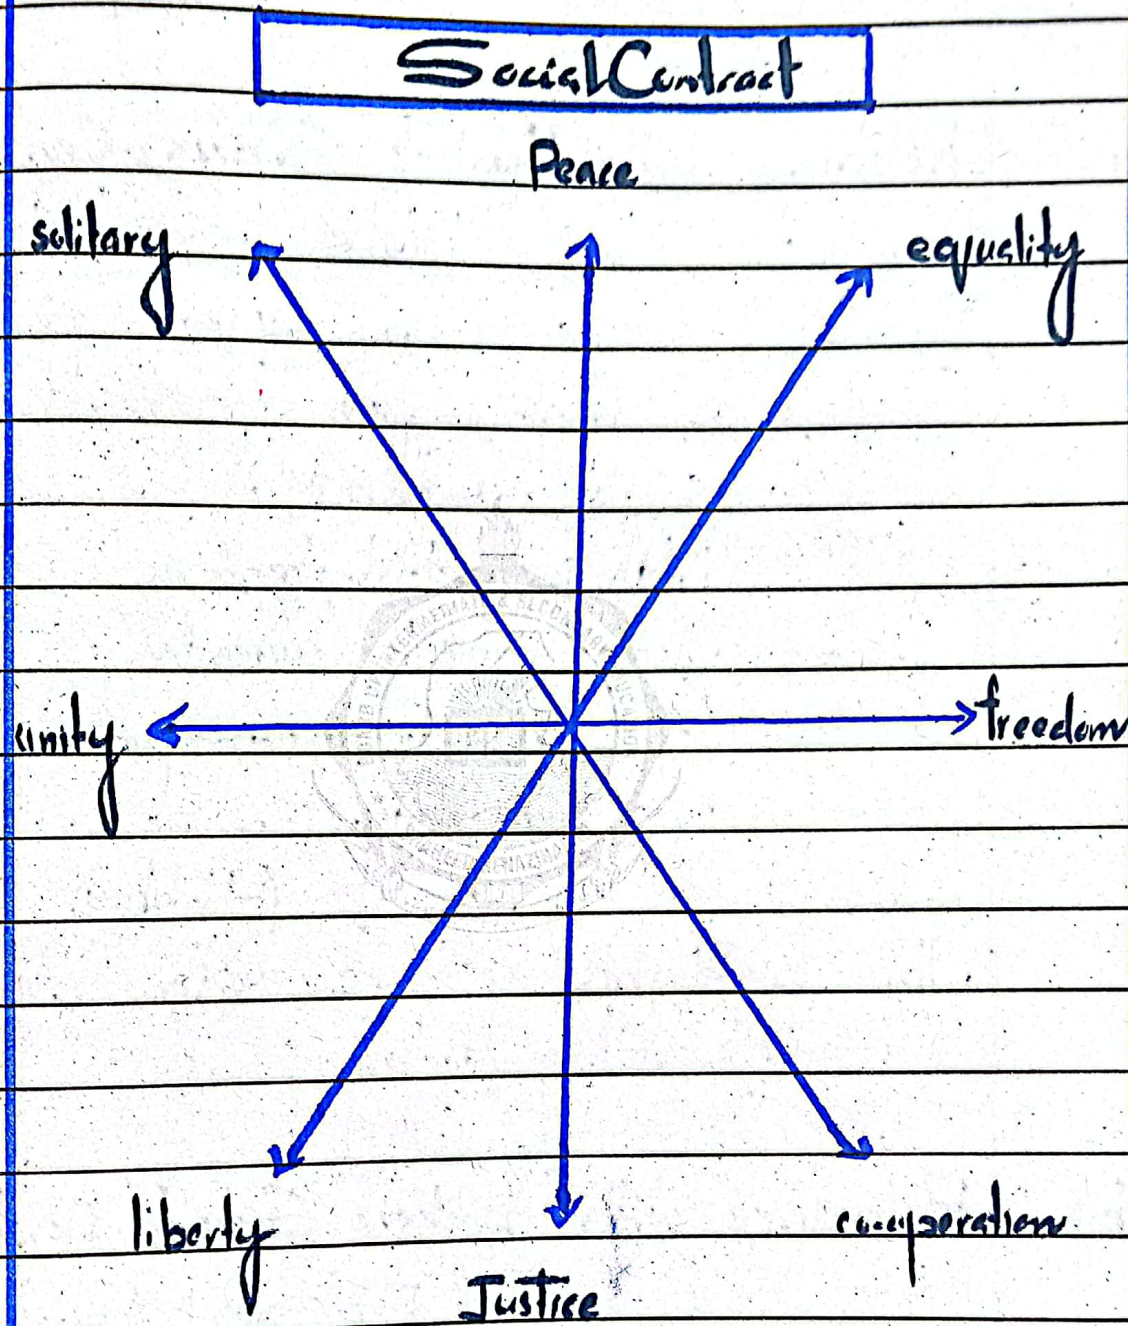 Social Contract
Peace
solitary
equality
unity
freedom
liberty
cooperation
Justice